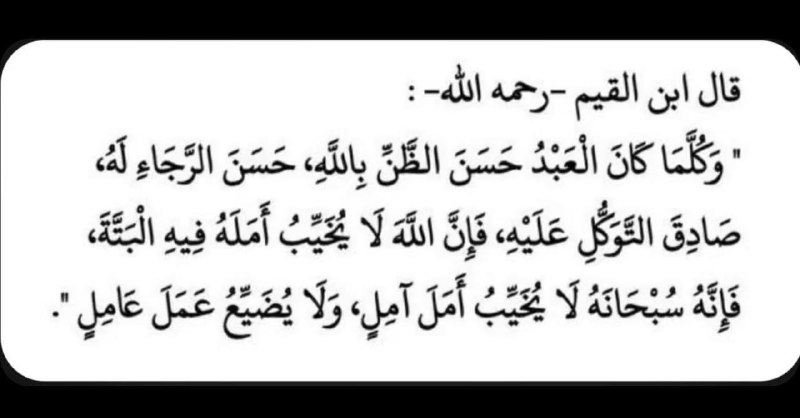 قال ابن القيم –رحمه الله– :
" وَكُلَّمَا كَانَ الْعَبْدُ حَسَنَ الظَّنِّ بِاللَّهِ، حَسَنَ الرَّجَاءِ لَهُ،
صَادِقَ التَّوَكُّلِ عَلَيْهِ، فَإِنَّ اللَّهَ لَا يُخَيِّبُ أَمَلَهُ فِيهِ الْبَتَّةَ،
فَإِنَّهُ سُبْحَانَهُ لَا يُخَيِّبُ أَمَلَ آمِلٍ، وَلَا يُضَيِّعُ عَمَلَ عَامِلٍ ".